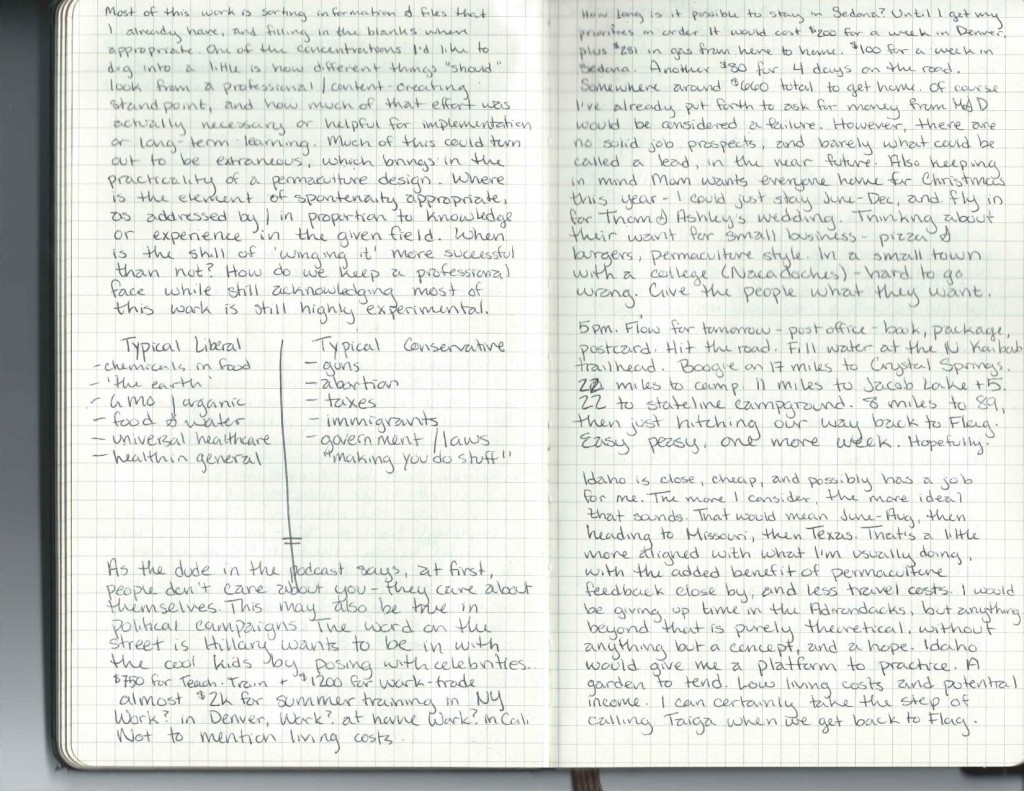 Most of this work is sorting information & files that
I already have, and filling in the blanks when
appropriate. One of the concentrations I'd like to
dig into a little is how different things "should"
look from a professional / content-creating
standpoint, and how much of that effort was
actually necessary or helpful for implementation
or long-term learning. Much of this could turn
out to be extraneous, which brings in the
practicality of a permaculture design. Where
is the element of spontenaity appropriate,
as addressed by / in proportion to knowledge
or experience in the given field. When
is the skill of 'winging it' more successful
than not? How do we keep a professional
face while still acknowledging most of
this work is still highly experimental.
Typical Liberal
- chemicals in food
- 'the earth'
- GMO / organic
- food & water
- universal healthcare
- health in general
Typical Conservative
- guns
- abortion
- taxes
- immigrants
- government / laws
"making you do stuff"
As the dude in the podcast says, at first,
people don't care about you - they care about
themselves. This may also be true in
political campaigns. The word on the
street is Hillary wants to be in with
the cool kids by posing with celebrities...
$750 for Teach. Train + $1200 for work-trade
almost $2k for summer training in NY
Work? in Denver, Work? at home Work? in Cali
Not to mention living costs.
How long is it possible to stay in Sedona? Until I get my
priorities in order. It would cost $200 for a week in Denver.
plus $281 in gas from here to home. $100 for a week in
Sedona. Another $80 for 4 days on the road.
Somewhere around $660 total to get home. Of course
I've already put forth to ask for money from M&D
would be considered a failure. However, there are
no solid job prospects, and barely what could be
called a lead, in the near future. Also keeping
in mind Mom wants everyone home for Christmas
this year - I could just stay June-Dec, and fly in
for Thom & Ashley's wedding. Thinking about
their want for small business - pizza &
burgers, permaculture style. In a small town
with a college (Nacadoches) - hard to go
wrong. Give the people what they want.
5pm. Flow for tomorrow - post office - book, package,
postcard. Hit the road. Fill water at the N Kaibab
trailhead. Boogie on 17 miles to Crystal Springs.
22 miles to camp. 11 miles to Jacob Lake +5.
22 to stateline campground. 8 miles to 89,
then just hitching our way back to Flag.
Easy peasy, one more week. Hopefully.
Idaho is close, cheap, and possibly has a job
for me. The more I consider, the more ideal
that sounds. That would mean June-Aug, then
heading to Missouri, then Texas. That's a little
more aligned with what I'm usually doing,
with the added benefit of permaculture
feedback close by, and less travel costs. I would
be giving up time in the Adirondacks, but anything
beyond that is purely theoretical, without
anything but a concept, and a hope. Idaho
would give me a platform to practice. A
garden to tend. Low living costs and potential
income. I can certainly take the step of
calling Taiga when we get back to Flag.